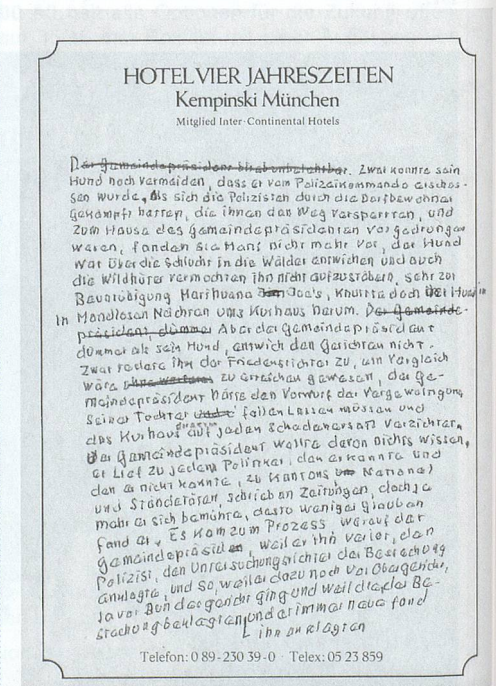 HOTEL VIER JAHRESZEITEN
Kempinski München
Mitglied Inter·Continental Hotels
Der Gemeindepräsident blieb unbelehrbar. Zwar konnte sein
Hund noch vermeiden, dass er vom Polizeikommando erschos-
sen wurde, Als sich die Polizisten durch die Dorfbewohner
gekämpft hatten, die ihnen den Weg versperrten, und
zum Hause des Gemeindepräsidenten vorgedrungen
waren, fanden sie Mani nicht mehr vor, der Hund
war über die Schlucht in die Wälder entwichen und auch
die Wildhüter vermochten ihn nicht aufzustöbern, sehr zur
Beunruhigung Marihuana Joe's, knurrte doch der Hund in
In Mondlosen Nächten ums Kurhaus herum. Der Gemeinde-
präsident, dümmer Aber der Gemeindepräsident
dümmer als sein Hund, entwich den Gerichten nicht.
Zwar redete ihm der Friedensrichter zu, ein Vergleich
wäre zu erreichen gewesen, der Ge-
meindepräsident hätte den Vorwurf der Vergewaltigung
seiner Tochter fallen lassen müssen und
das Kurhaus auf jeden Schadenersatz verzichten.
Der Gemeindepräsident wollte davon nichts wissen,
er lief zu jedem Politiker, den er kannte und
den er nicht kannte, zu Kantons National
und Ständeräten, schrieb an Zeitungen, doch je
mehr er sich bemühte, desto weniger Glauben
fand er. Es kam zum Prozess, worauf der
Gemeindepräsident, weil er ihn verlor, den
Polizist, den Untersuchungsrichter der Bestechung
anklagte, und so, weil er dazu noch vor Obergericht,
ja vor Bundesgericht ging und weil die der Be-
stechung beklagten und er immer neue fand
ihn anklagten
Telefon: 0 89-230 39-0 · Telex: 05 23 859